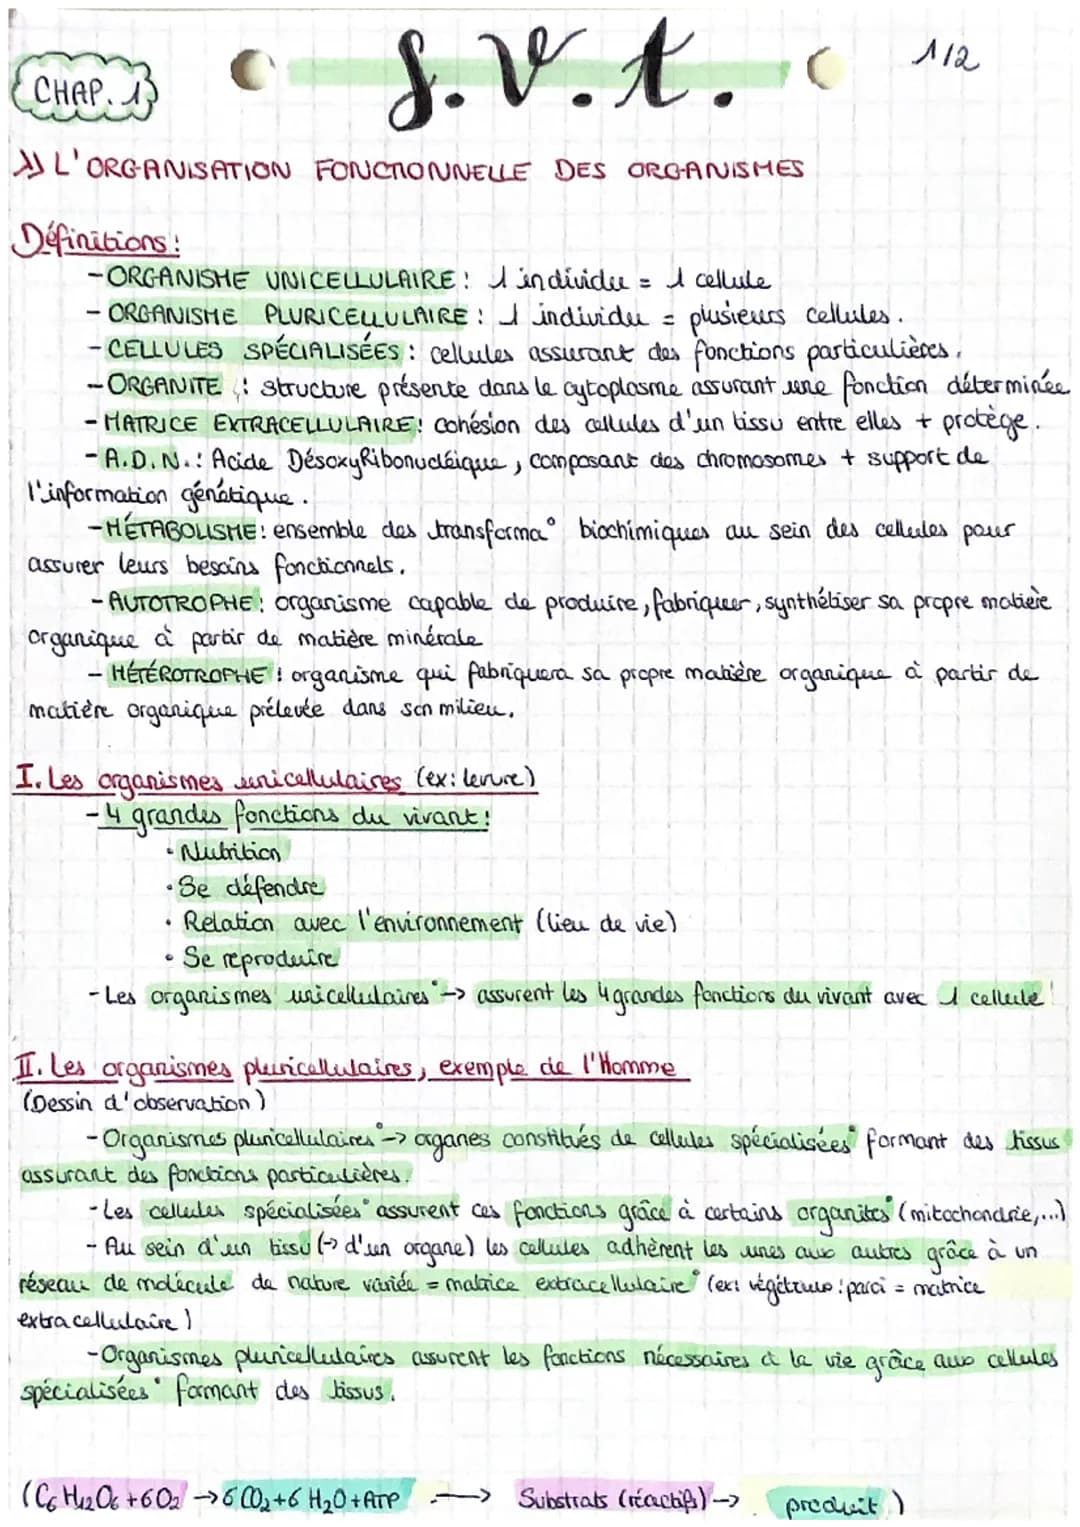 CHAP. 1
S.V.t.
1/2
L'ORGANISATION FONCTIONNELLE DES ORGANISMES
Définitions :
- ORGANISME UNICELLULAIRE : 1 individu = 1 cellule
- ORGANISME PLURICELLULAIRE : 1 individu = plusieurs cellules.
- CELLULES SPÉCIALISÉES : cellules assurant des fonctions particulières.
- ORGANITE : structure présente dans le cytoplasme assurant une fonction déterminée
- MATRICE EXTRACELLULAIRE : cohésion des cellules d'un tissu entre elles + protège.
- A.D.N. : Acide DésoxyRibonucléique, composant des chromosomes + support de
l'information génétique.
- MÉTABOLISME : ensemble des transforma° biochimiques au sein des cellules pour
assurer leurs besoins fonctionnels.
- AUTOTROPHE : organisme capable de produire, fabriquer, synthétiser sa propre matière
organique à partir de matière minérale
- HÉTÉROTROPHE : organisme qui fabriquera sa propre matière organique à partir de
matière organique prélevée dans son milieu.
I. Les organismes unicellulaires (ex: levure)
- 4 grandes fonctions du vivant :
• Nutrition
• Se défendre
• Relation avec l'environnement (lieu de vie)
• Se reproduire
- Les organismes unicellulaires° -> assurent les 4 grandes fonctions du vivant avec 1 cellule !
II. Les organismes pluricellulaires, exemple de l'Homme
(Dessin d'observation)
- Organismes pluricellulaires° -> organes constitués de cellules spécialisées° formant des tissus
assurant des fonctions particulières.
- Les cellules spécialisées° assurent ces fonctions grâce à certains organites° (mitochondrie,...)
- Au sein d'un tissu (-> d'un organe) les cellules adhèrent les unes aux autres grâce à un
réseau de molécule de nature variée = matrice extracellulaire° (ex: végétaux : paroi = matrice
extracellulaire)
- Organismes pluricellulaires assurent les fonctions nécessaires à la vie grâce aux cellules
spécialisées° formant des tissus.
(C6H12O6 + 6O2 -> 6CO2 + 6H2O + ATP -> Substrats (réactifs) -> produit)